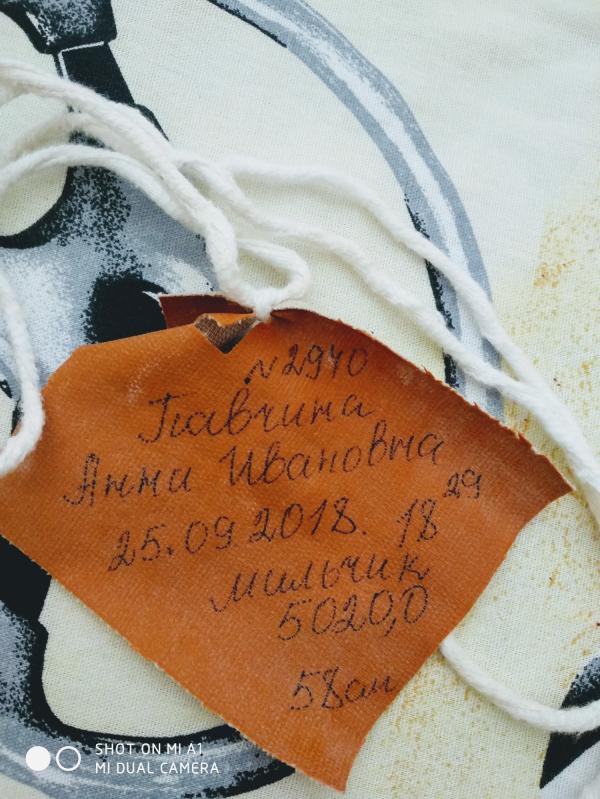 № 2940
Павчина
Анни Ивановна
25.09.2018. 18 29
мильчик
5020,0
58см
SHOT ON MI A1
MI DUAL CAMERA